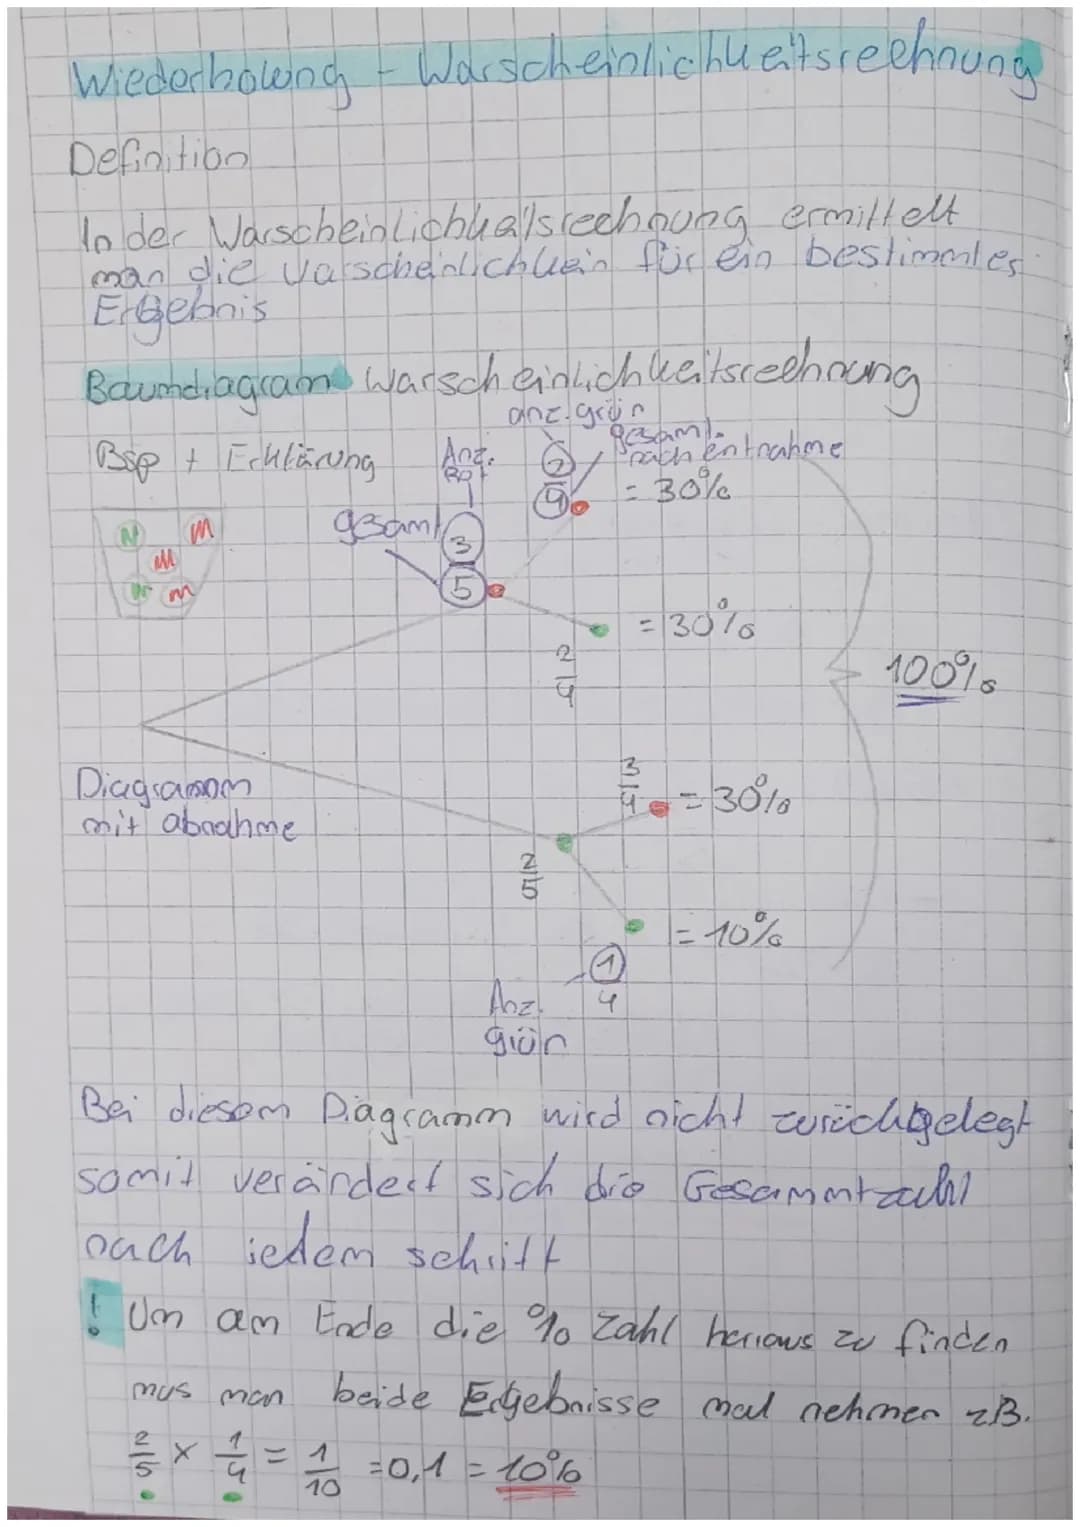 Wiederholung - Warscheinlichkeitsrechnung
Definition
In der Warscheinlichkeitsrechnung ermittelt
man die Warscheinlichkein für ein bestimmtes
Ergebnis
Baumdiagram Warscheinlichkeitsrechnung
anz. grün
Bsp + Erklärung
Anz. Rot
gesamt nach entnahme
2/4
= 30%
gesamt
3/5
= 30%
2/4
100%
Diagramm
mit abnahme
3/4 = 30%
2/5
= 10%
1/4
Anz.
grün
Bei diesem Diagramm wird nicht zurückgelegt
somit verändert sich die Gesammtzahl
nach jedem schritt
! Um am Ende die % Zahl heraus zu finden
mus man beide Ergebnisse mal nehmen zB.
2/5 × 1/4 = 1/10 = 0,1 = 10%